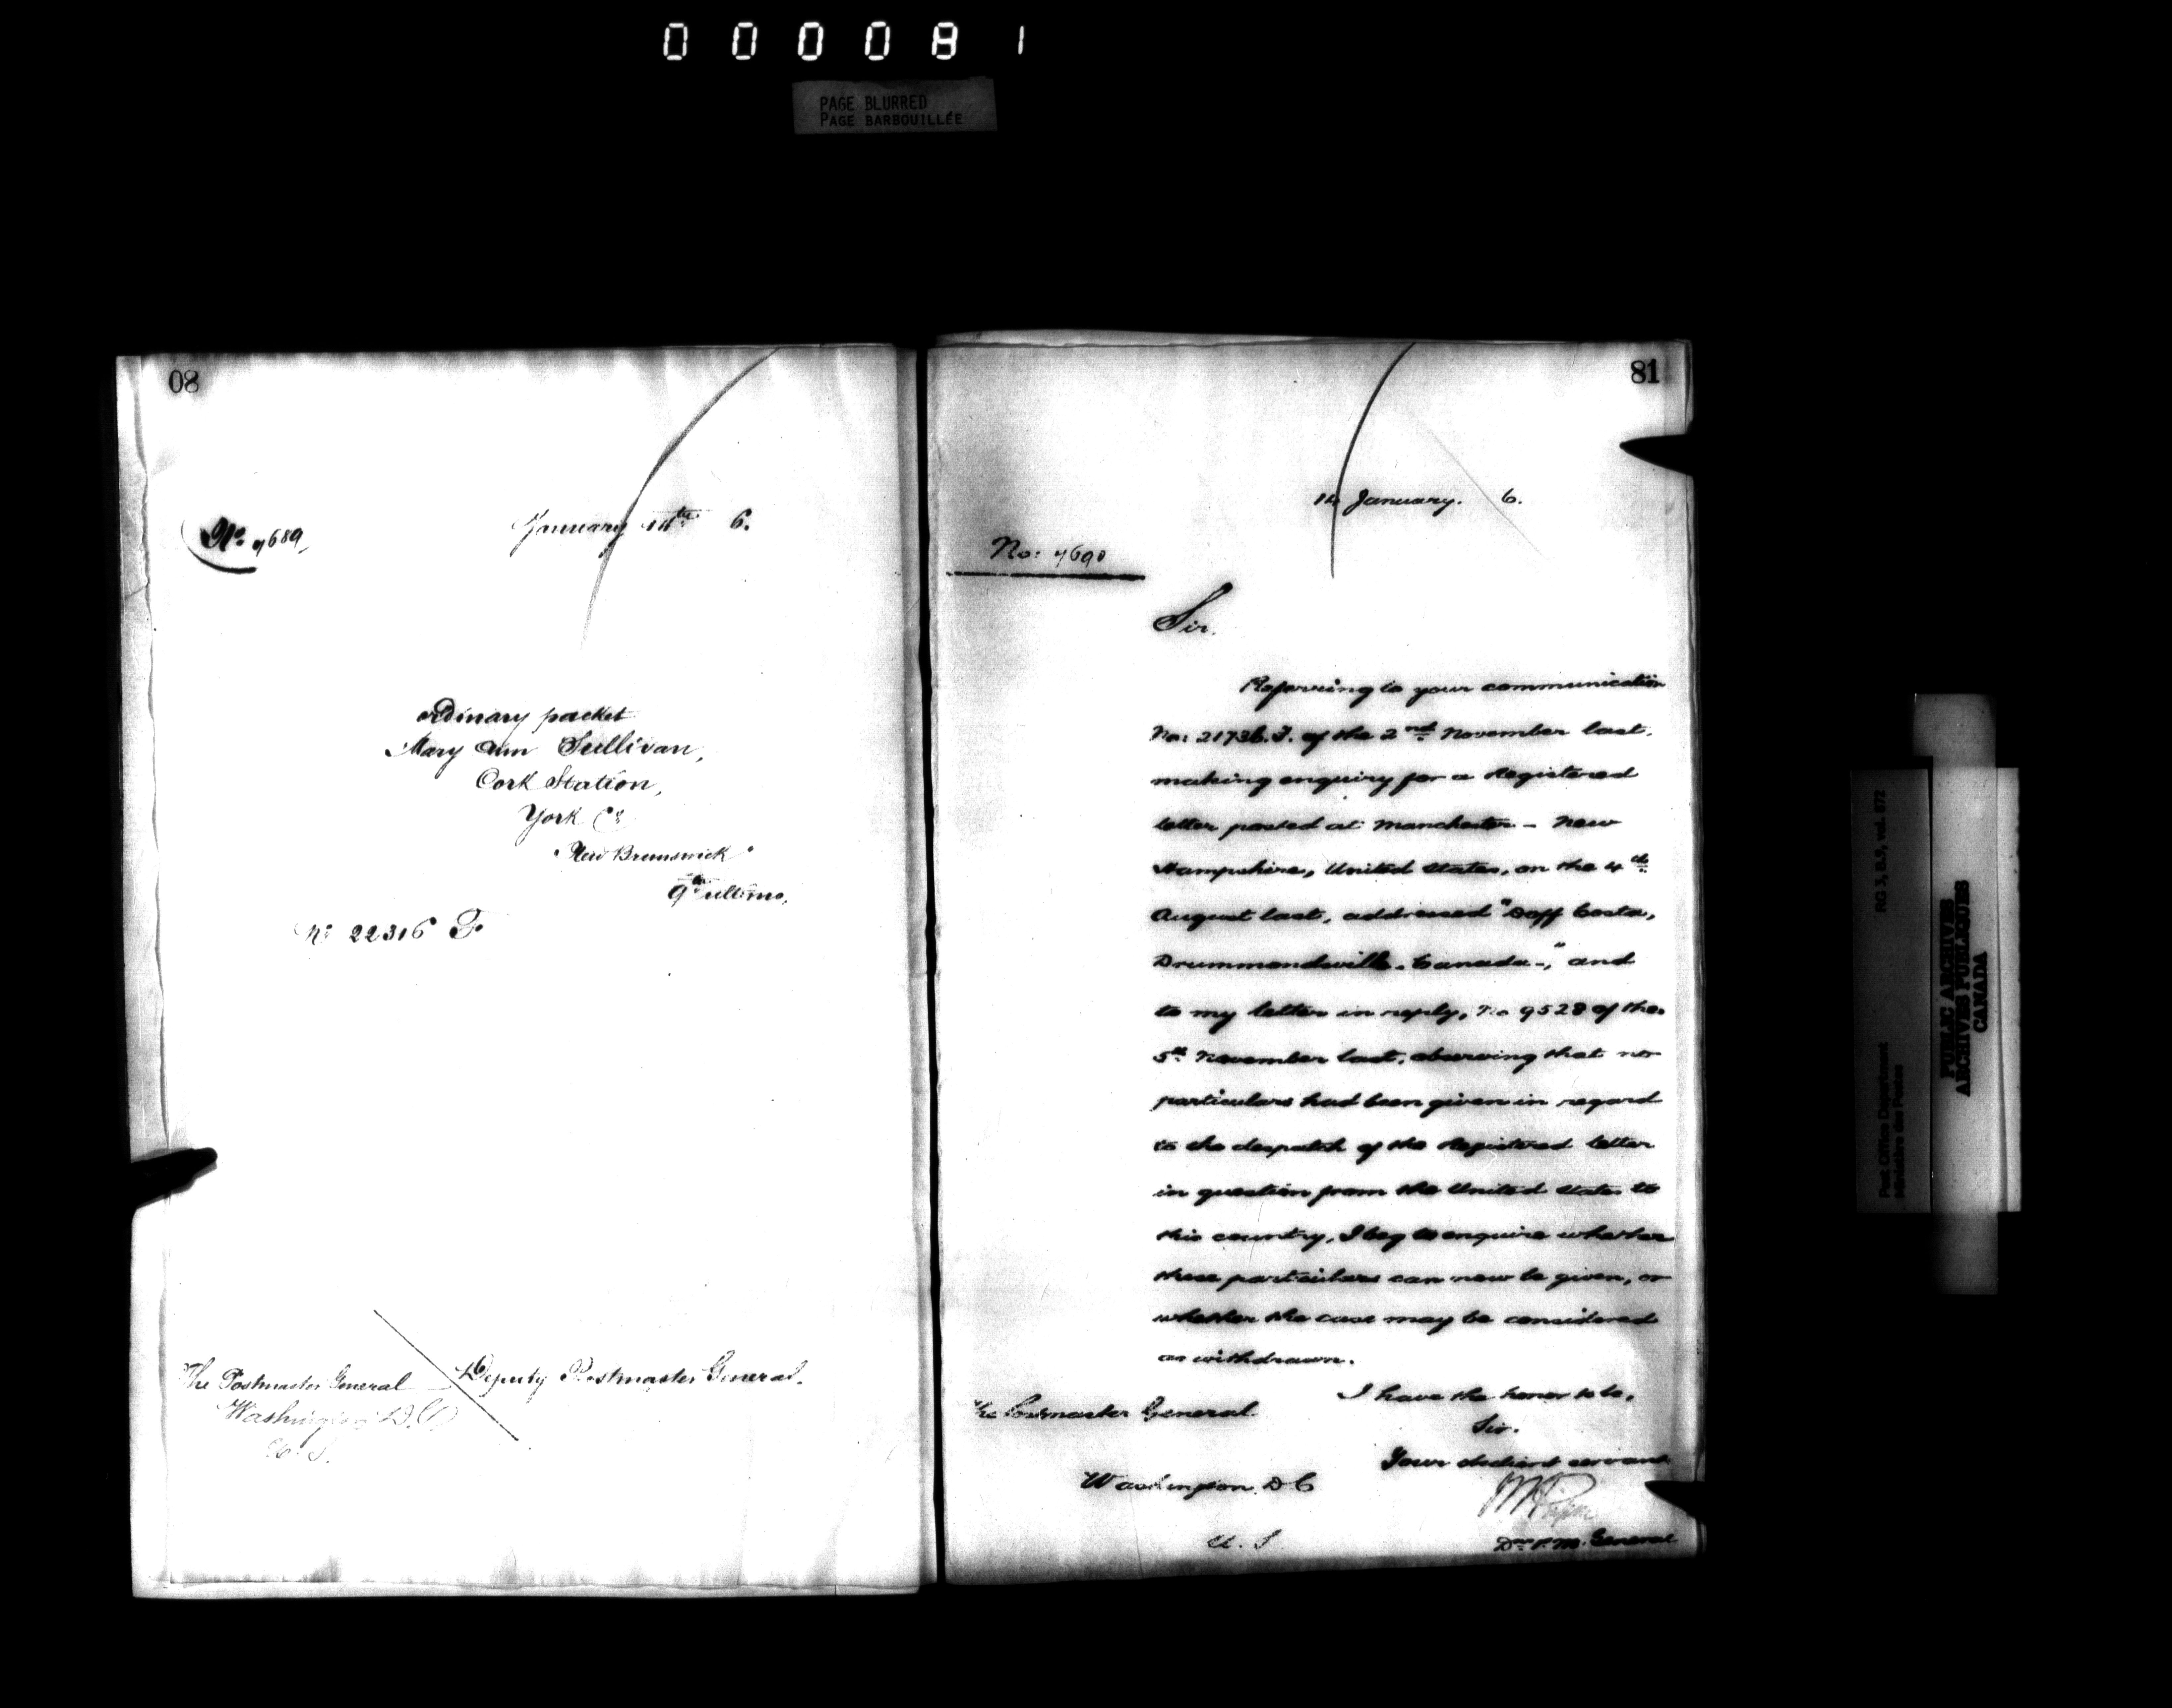 000081
PAGE BLURRED
PAGE BARBOUILLÉE
08
No. 7689
January 14th 6.
ordinary packet
Mary Ann Sullivan,
Cork Station,
York Co
"New Brunswick"
9th ultimo,
No 22316 F.
The Postmaster General
Deputy Postmaster General.
Washington D.C.
U.S.
81
14 January. 6.
No: 7690
Sir.
Referring to your communication
No: 21736.F. of the 2nd November last,
making enquiry for a Registered
letter posted at Manchester - New
Hampshire, United States, on the 4th
August last, addressed "Daff Costa,
Drummondville, Canada-," and
to my letter in reply, No 9528 of the
5th November last, observing that no
particulars had been given in regard
to the despatch of the Registered letter
in question from the United States to
this country, I beg to enquire whether
these particulars can now be given, or
whether the case may be considered
as withdrawn.
I have the honor to be,
Sir.
Your obedient servant
The Postmaster General
Washington. D C
U. S
D P. M. General
RG 3, B.9, vol. 872
Post Office Department
Ministère des Postes
PUBLIC ARCHIVES
ARCHIVES PUBLIQUES
CANADA